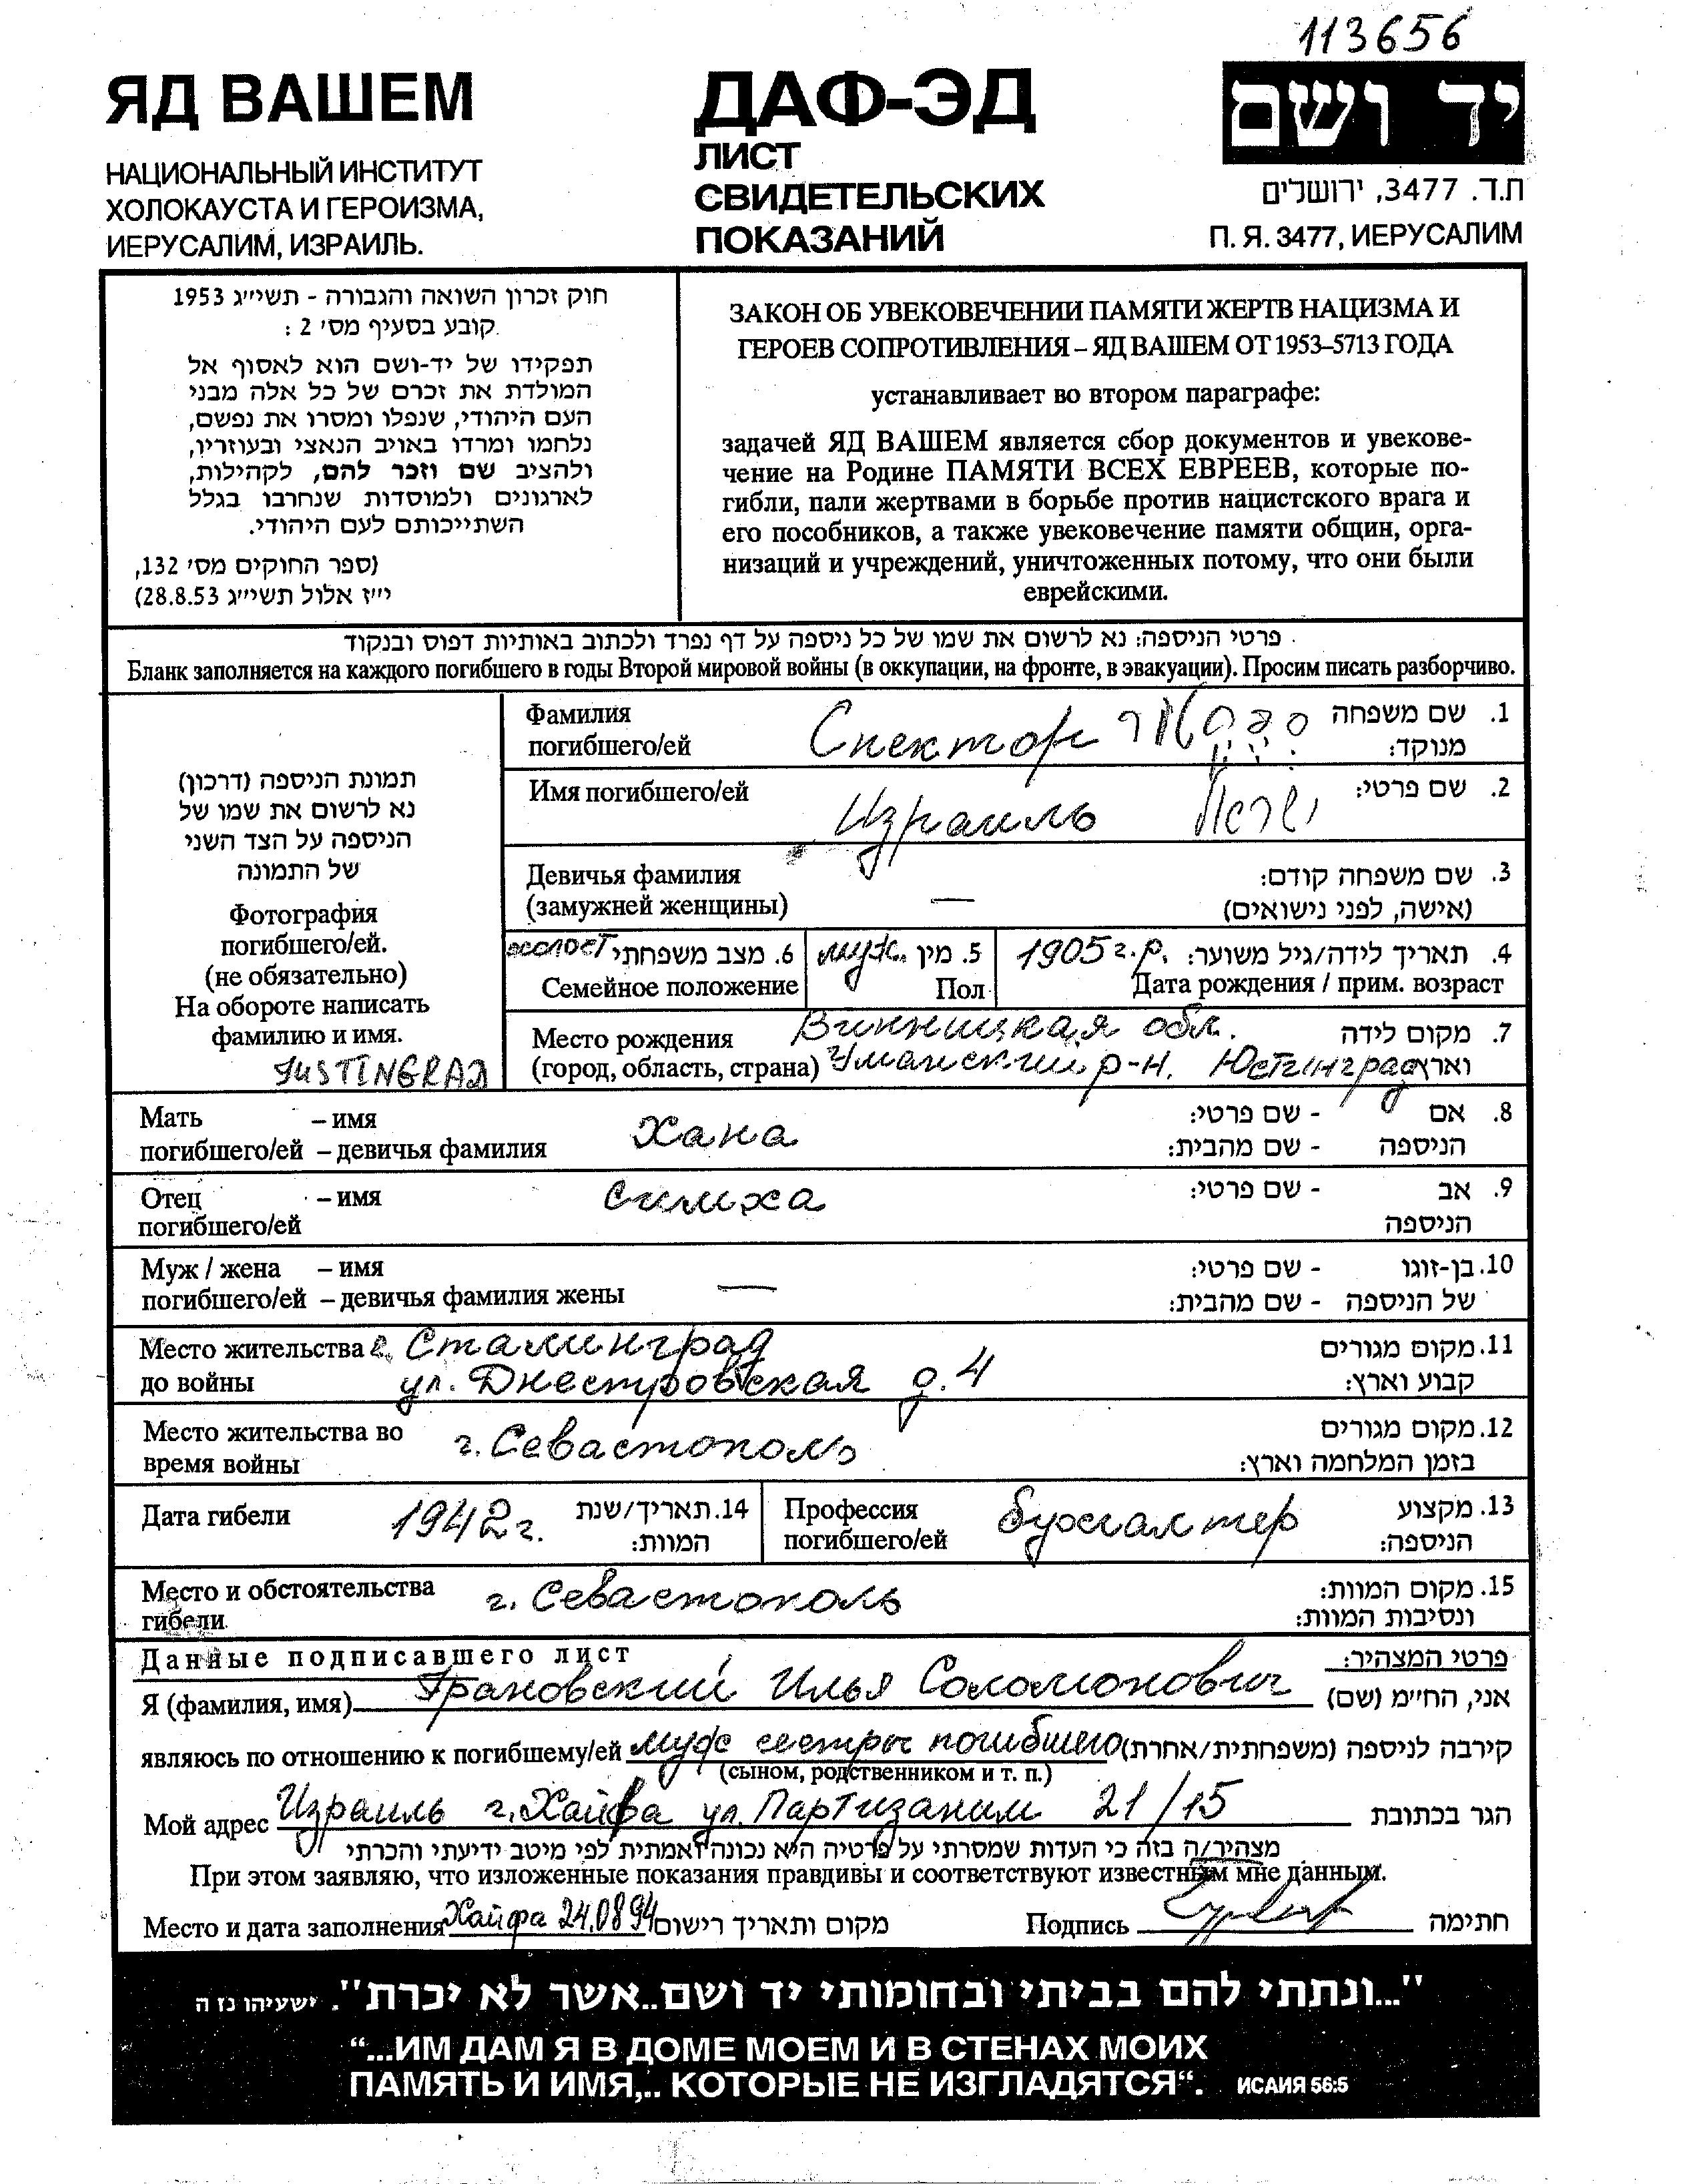 113656
ЯД ВАШЕМ
НАЦИОНАЛЬНЫЙ ИНСТИТУТ
ХОЛОКАУСТА И ГЕРОИЗМА,
ИЕРУСАЛИМ, ИЗРАИЛЬ.
ДАФ-ЭД
ЛИСТ
СВИДЕТЕЛЬСКИХ
ПОКАЗАНИЙ
יד ושם
ת.ד. 3477, ירושלים
П. Я. 3477, ИЕРУСАЛИМ
חוק זכרון השואה והגבורה - תשי״ג 1953
קובע בסעיף מס׳ 2 :
תפקידו של יד-ושם הוא לאסוף אל
המולדת את זכרם של כל אלה מבני
העם היהודי, שנפלו ומסרו את נפשם,
נלחמו ומרדו באויב הנאצי ובעוזריו,
ולהציב שם וזכר להם, לקהילות,
לארגונים ולמוסדות שנחרבו בגלל
השתייכותם לעם היהודי.
(ספר החוקים מס׳ 132,
י״ז אלול תשי״ג 28.8.53)
ЗАКОН ОБ УВЕКОВЕЧЕНИИ ПАМЯТИ ЖЕРТВ НАЦИЗМА И
ГЕРОЕВ СОПРОТИВЛЕНИЯ – ЯД ВАШЕМ ОТ 1953–5713 ГОДА
устанавливает во втором параграфе:
задачей ЯД ВАШЕМ является сбор документов и увекове-
чение на Родине ПАМЯТИ ВСЕХ ЕВРЕЕВ, которые по-
гибли, пали жертвами в борьбе против нацистского врага и
его пособников, а также увековечение памяти общин, орга-
низаций и учреждений, уничтоженных потому, что они были
еврейскими.
פרטי הניספה: נא לרשום את שמו של כל ניספה על דף נפרד ולכתוב באותיות דפוס ובנקוד
Бланк заполняется на каждого погибшего в годы Второй мировой войны (в оккупации, на фронте, в эвакуации). Просим писать разборчиво.
תמונת הניספה (דרכון)
נא לרשום את שמו של
הניספה על הצד השני
של התמונה
Фотография
погибшего/ей.
(не обязательно)
На обороте написать
фамилию и имя.
JUSTINGRAD
Фамилия Спектор ספקטור 1. שם משפחה
погибшего/ей מנוקד:
Имя погибшего/ей Израиль ישראל 2. שם פרטי:
Девичья фамилия — 3. שם משפחה קודם:
(замужней женщины) (אישה, לפני נישואים)
холост 6. מצב משפחתי муж. 5. מין 1905 г.р. 4. תאריך לידה/גיל משוער:
Семейное положение Пол Дата рождения / прим. возраст
Место рождения Винницкая обл. 7. מקום לידה
(город, область, страна) Уманский р-н. Юстинград וארץ
Мать – имя Хана 8. אם - שם פרטי:
погибшего/ей – девичья фамилия הניספה - שם מהבית:
Отец – имя Симха 9. אב - שם פרטי:
погибшего/ей הניספה
Муж / жена – имя — 10. בן-זוגו - שם פרטי:
погибшего/ей – девичья фамилия жены של הניספה - שם מהבית:
Место жительства г. Сталинград 11. מקום מגורים
до войны ул. Днестровская д. 4 קבוע וארץ:
Место жительства во г. Севастополь 12. מקום מגורים
время войны בזמן המלחמה וארץ:
Дата гибели 1942 г. 14. תאריך/שנת המוות:
Профессия бухгалтер 13. מקצוע
погибшего/ей הניספה:
Место и обстоятельства г. Севастополь 15. מקום המוות:
гибели ונסיבות המוות:
Данные подписавшего лист פרטי המצהיר:
Я (фамилия, имя) Грановский Илья Соломонович אני, החי״מ (שם)
являюсь по отношению к погибшему/ей муж сестры погибшего קירבה לניספה (משפחתית/אחרת)
(сыном, родственником и т. п.)
Мой адрес Израиль г. Хайфа ул. Партизаним 21/15 הגר בכתובת
מצהיר/ה בזה כי העדות שמסרתי על פרטיה היא נכונה ואמתית לפי מיטב ידיעתי והכרתי
При этом заявляю, что изложенные показания правдивы и соответствуют известным мне данным.
Место и дата заполнения Хайфа 24.08.94 מקום ותאריך רישום Подпись חתימה
"...ונתתי להם בביתי ובחומותי יד ושם..אשר לא יכרת". ישעיהו נז ה
“...ИМ ДАМ Я В ДОМЕ МОЕМ И В СТЕНАХ МОИХ
ПАМЯТЬ И ИМЯ,.. КОТОРЫЕ НЕ ИЗГЛАДЯТСЯ“. ИСАИЯ 56:5